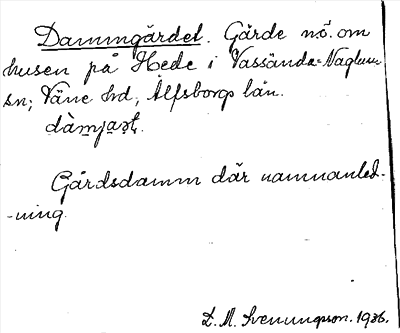 Dammgärdet. Gärde nö. om
husen på Hede i Vassända-Naglum
sn; Väne hd, Älfsborgs län.
dàmja̤ṛt.
Gårdsdamm där namnanled-
-ning.
L. M. Svenungsson. 1936.